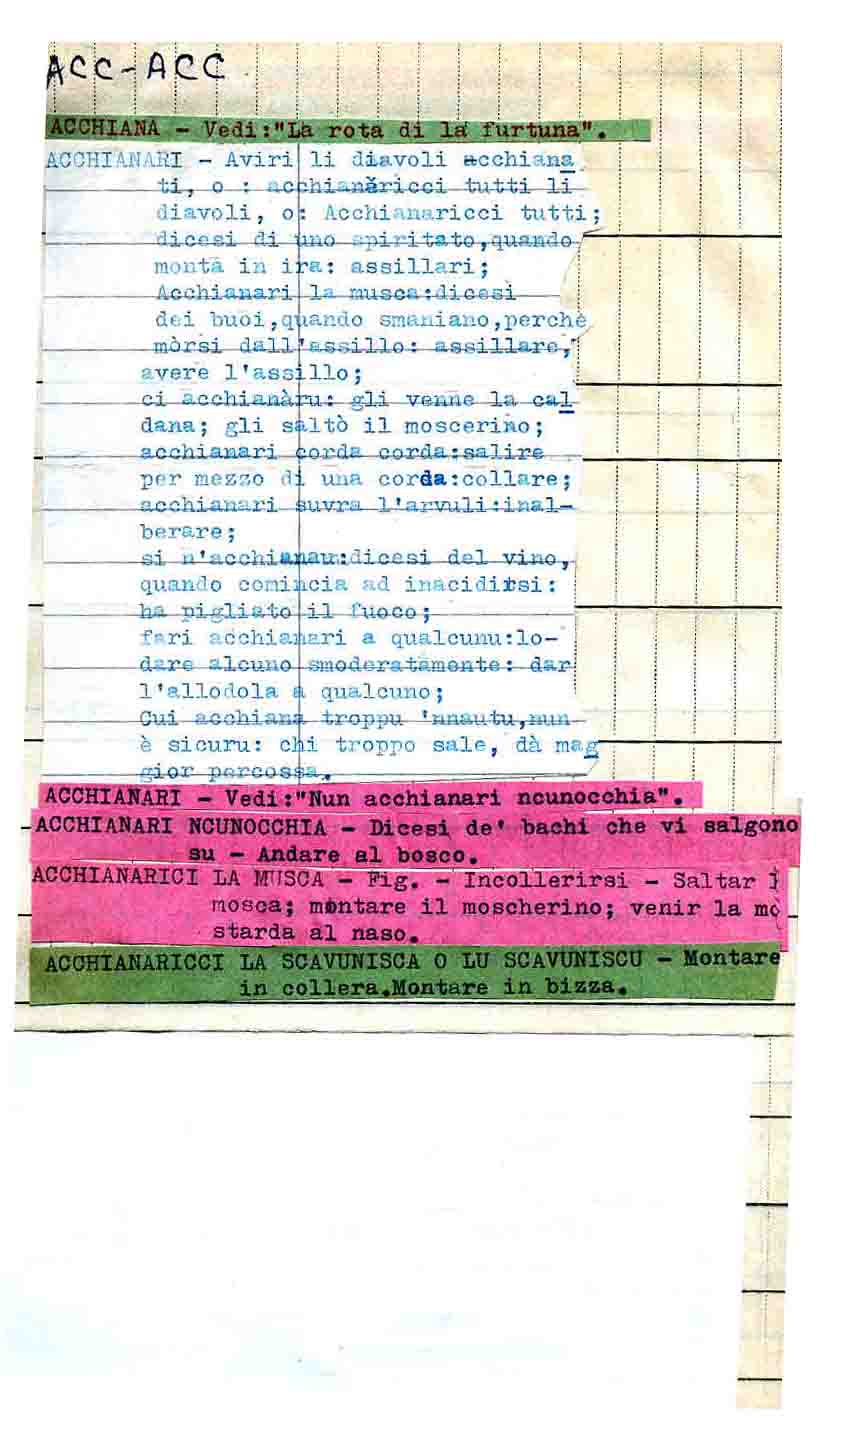 ACC-ACC
ACCHIANA - Vedi:"La rota di la furtuna".
ACCHIANARI - Aviri li diavoli acchiana
ti, o : acchianàricci tutti li
diavoli, o: Acchianaricci tutti;
dicesi di uno spiritato,quando
monta in ira: assillari;
Acchianari la musca:dicesi
dei buoi,quando smaniano,perchè
mòrsi dall'assillo: assillare,
avere l'assillo;
ci acchianàru: gli venne la cal
dana; gli saltò il moscerino;
acchianari corda corda:salire
per mezzo di una corda:collare;
acchianari suvra l'arvuli:inal-
berare;
si n'acchianau:dicesi del vino,
quando comincia ad inacidirsi:
ha pigliato il fuoco;
fari acchianari a qualcunu:lo-
dare alcuno smoderatamente: dar
l'allodola a qualcuno;
Cui acchiana troppu 'nnautu,nun
è sicuru: chi troppo sale, dà mag
gior percossa.
ACCHIANARI - Vedi:"Nun acchianari ncunocchia".
ACCHIANARI NCUNOCCHIA - Dicesi de' bachi che vi salgono
su - Andare al bosco.
ACCHIANARICI LA MUSCA - Fig. - Incollerirsi - Saltar
mosca; montare il moscherino; venir la mo
starda al naso.
ACCHIANARICCI LA SCAVUNISCA O LU SCAVUNISCU - Montare
in collera.Montare in bizza.